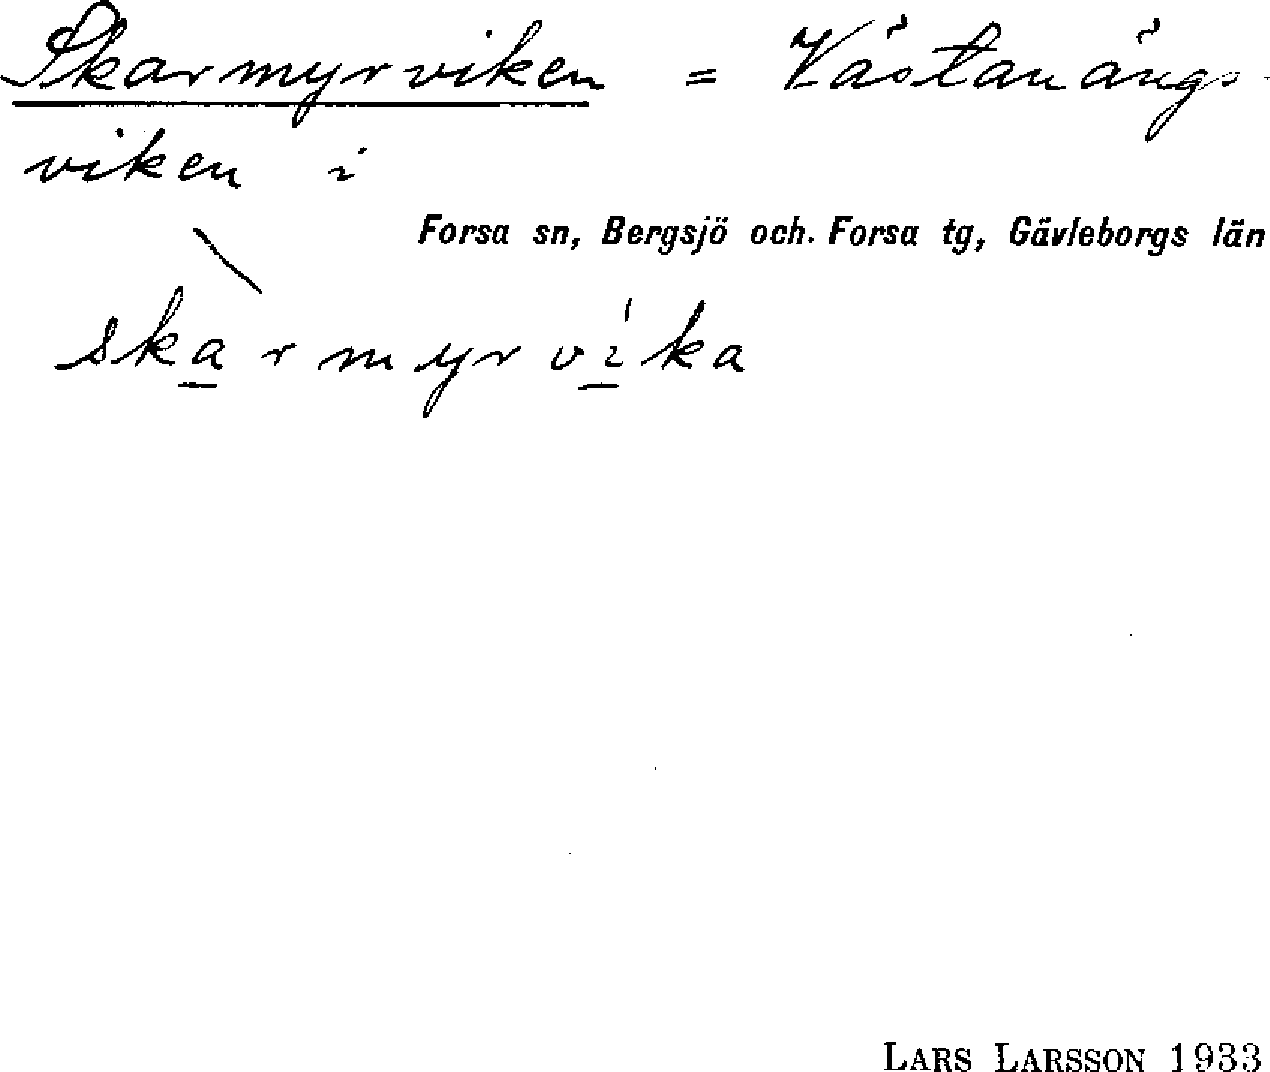 Skarmyrviken = Västanängs-
viken i
Forsa sn, Bergsjö och. Forsa tg, Gävleborgs län
skarmyrvika
LARS LARSSON 1933